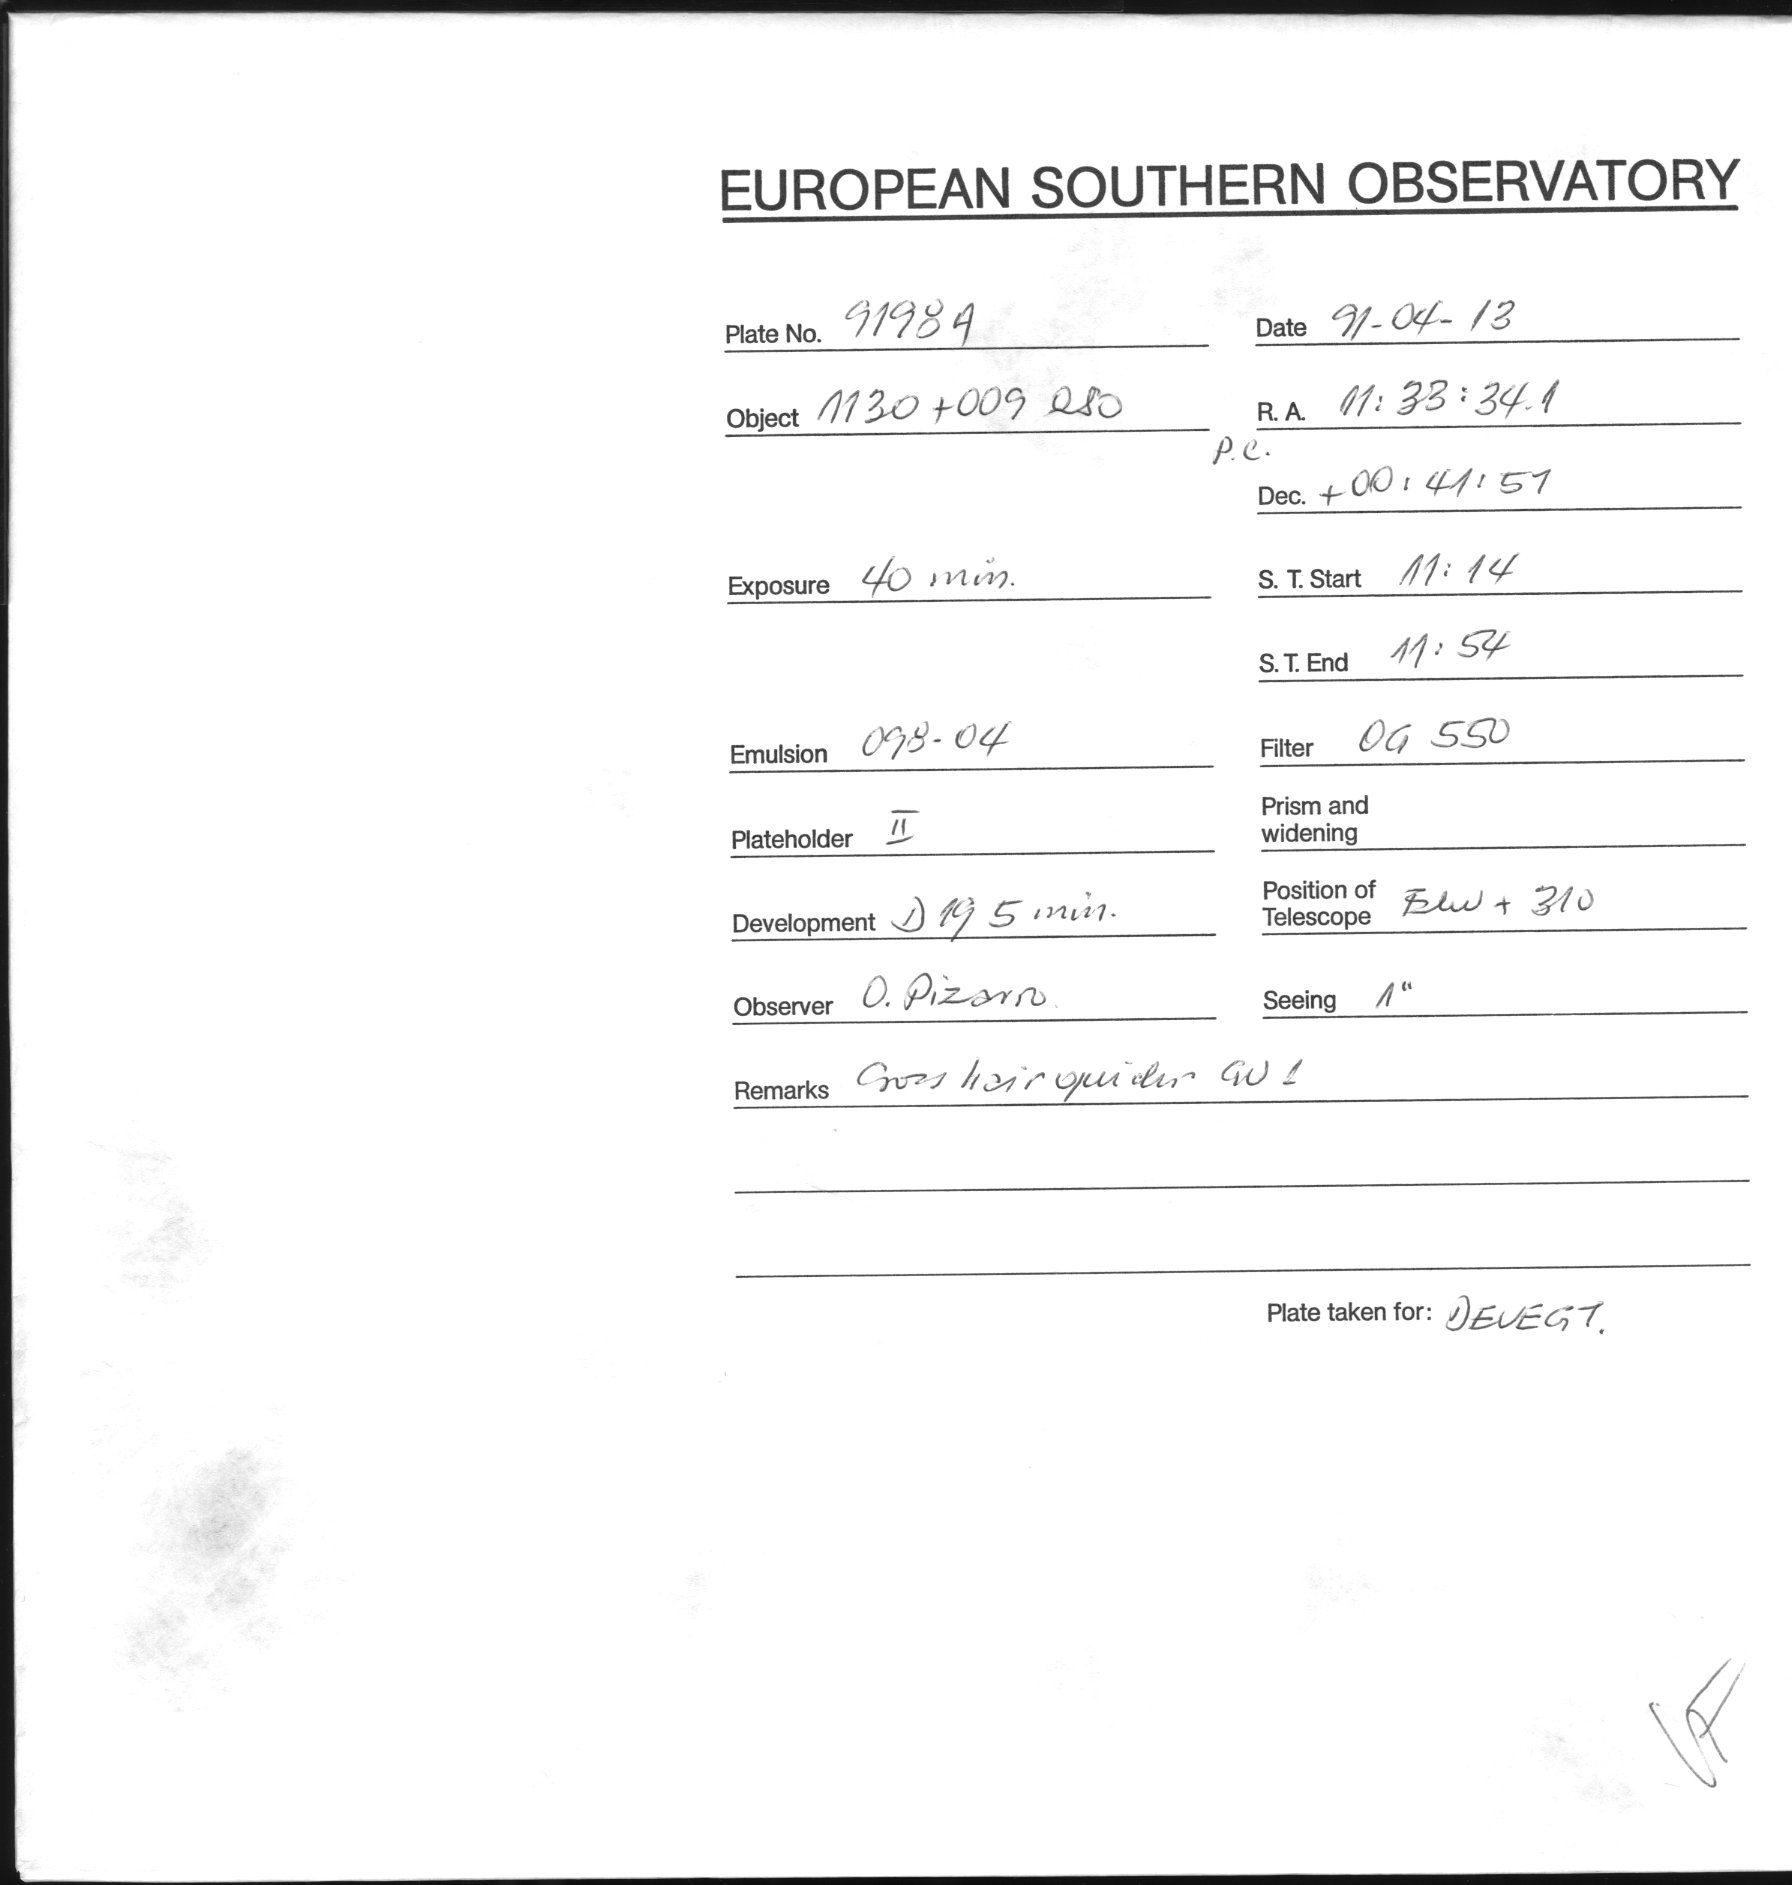 EUROPEAN SOUTHERN OBSERVATORY
Plate No. 9198A Date 91-04-13
Object 1130+009 QSO R. A. 11:33:34.1
P.C.
Dec. +00:41:51
Exposure 40 min. S. T. Start 11:14
S. T. End 11:54
Emulsion 098-04 Filter OG 550
Plateholder II Prism and
widening
Development D19 5 min. Position of
Telescope + 310
Observer O. Pizarro Seeing 1"
Remarks Cross hair guider GW 1
Plate taken for: DEVEGT.